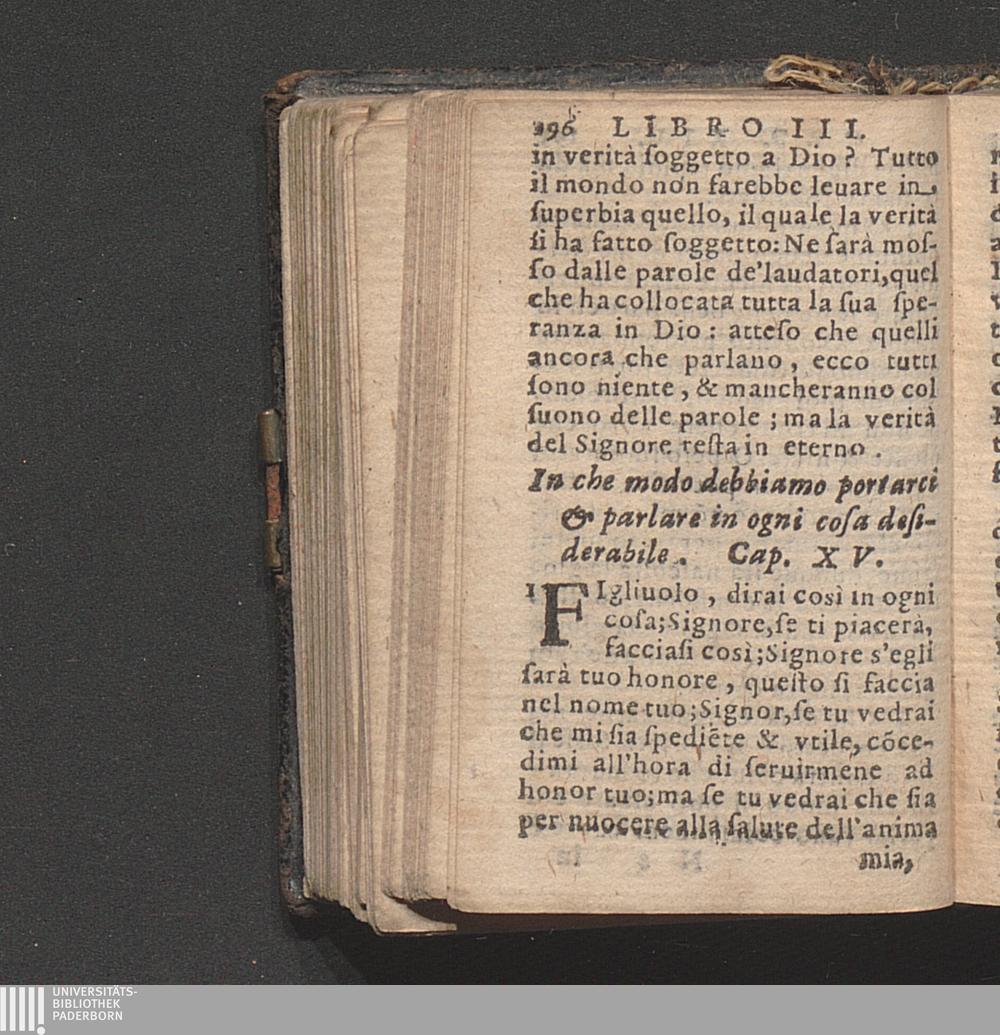 196 LIBRO III.
in verità ſoggetto a Dio? Tutto
il mondo non farebbe leuare in
ſuperbia quello, il quale la verità
ſi ha fatto ſoggetto: Ne ſarà moſ-
ſo dalle parole de'laudatori, quel
che ha collocata tutta la ſua ſpe-
ranza in Dio: atteſo che quelli
ancora che parlano, ecco tutti
ſono niente, & mancheranno col
ſuono delle parole; ma la verità
del Signore reſta in eterno.
In che modo debbiamo portarci
& parlare in ogni coſa deſi-
derabile. Cap. XV.
1 FIgliuolo, dirai così in ogni
coſa; Signore, ſe ti piacerà,
facciaſi così; Signore s'egli
ſarà tuo honore, queſto ſi faccia
nel nome tuo; Signor, ſe tu vedrai
che mi ſia ſpediẽte & vtile, cõce-
dimi all'hora di ſeruirmene ad
honor tuo; ma ſe tu vedrai che ſia
per nuocere alla ſalute dell'anima
mia,
UNIVERSITÄTS-
BIBLIOTHEK
PADERBORN